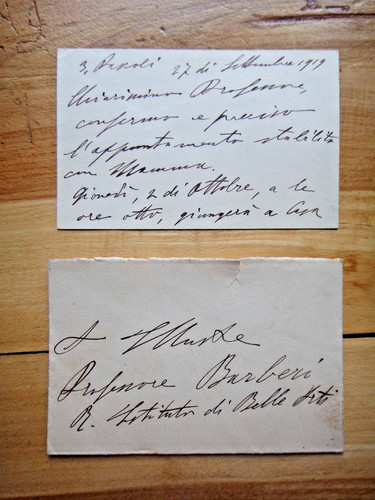 27 di Settembre 1919
Chiarissimo Professore,
confermo e preciso
l'appuntamento stabilito
con Mamma.
Giovedì, 2 di Ottobre, a le
ore otto, giungerà a Casa
Illustre
Professore Barberi
R. Istituto di Belle Arti